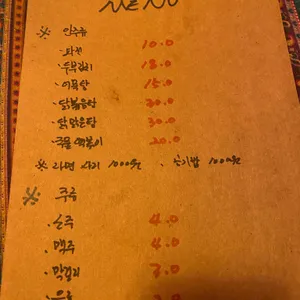 MENU
※ 안주류
· 파전 10.0
· 두부김치 18.0
· 어묵탕 15.0
· 닭볶음탕 30.0
· 닭맑은탕 30.0
· 국물 떡볶이 20.0
※ 라면 사리 1000원 · 공기밥 1000원
※ 주류
· 소주 4.0
· 맥주 4.0
· 막걸리 3.0